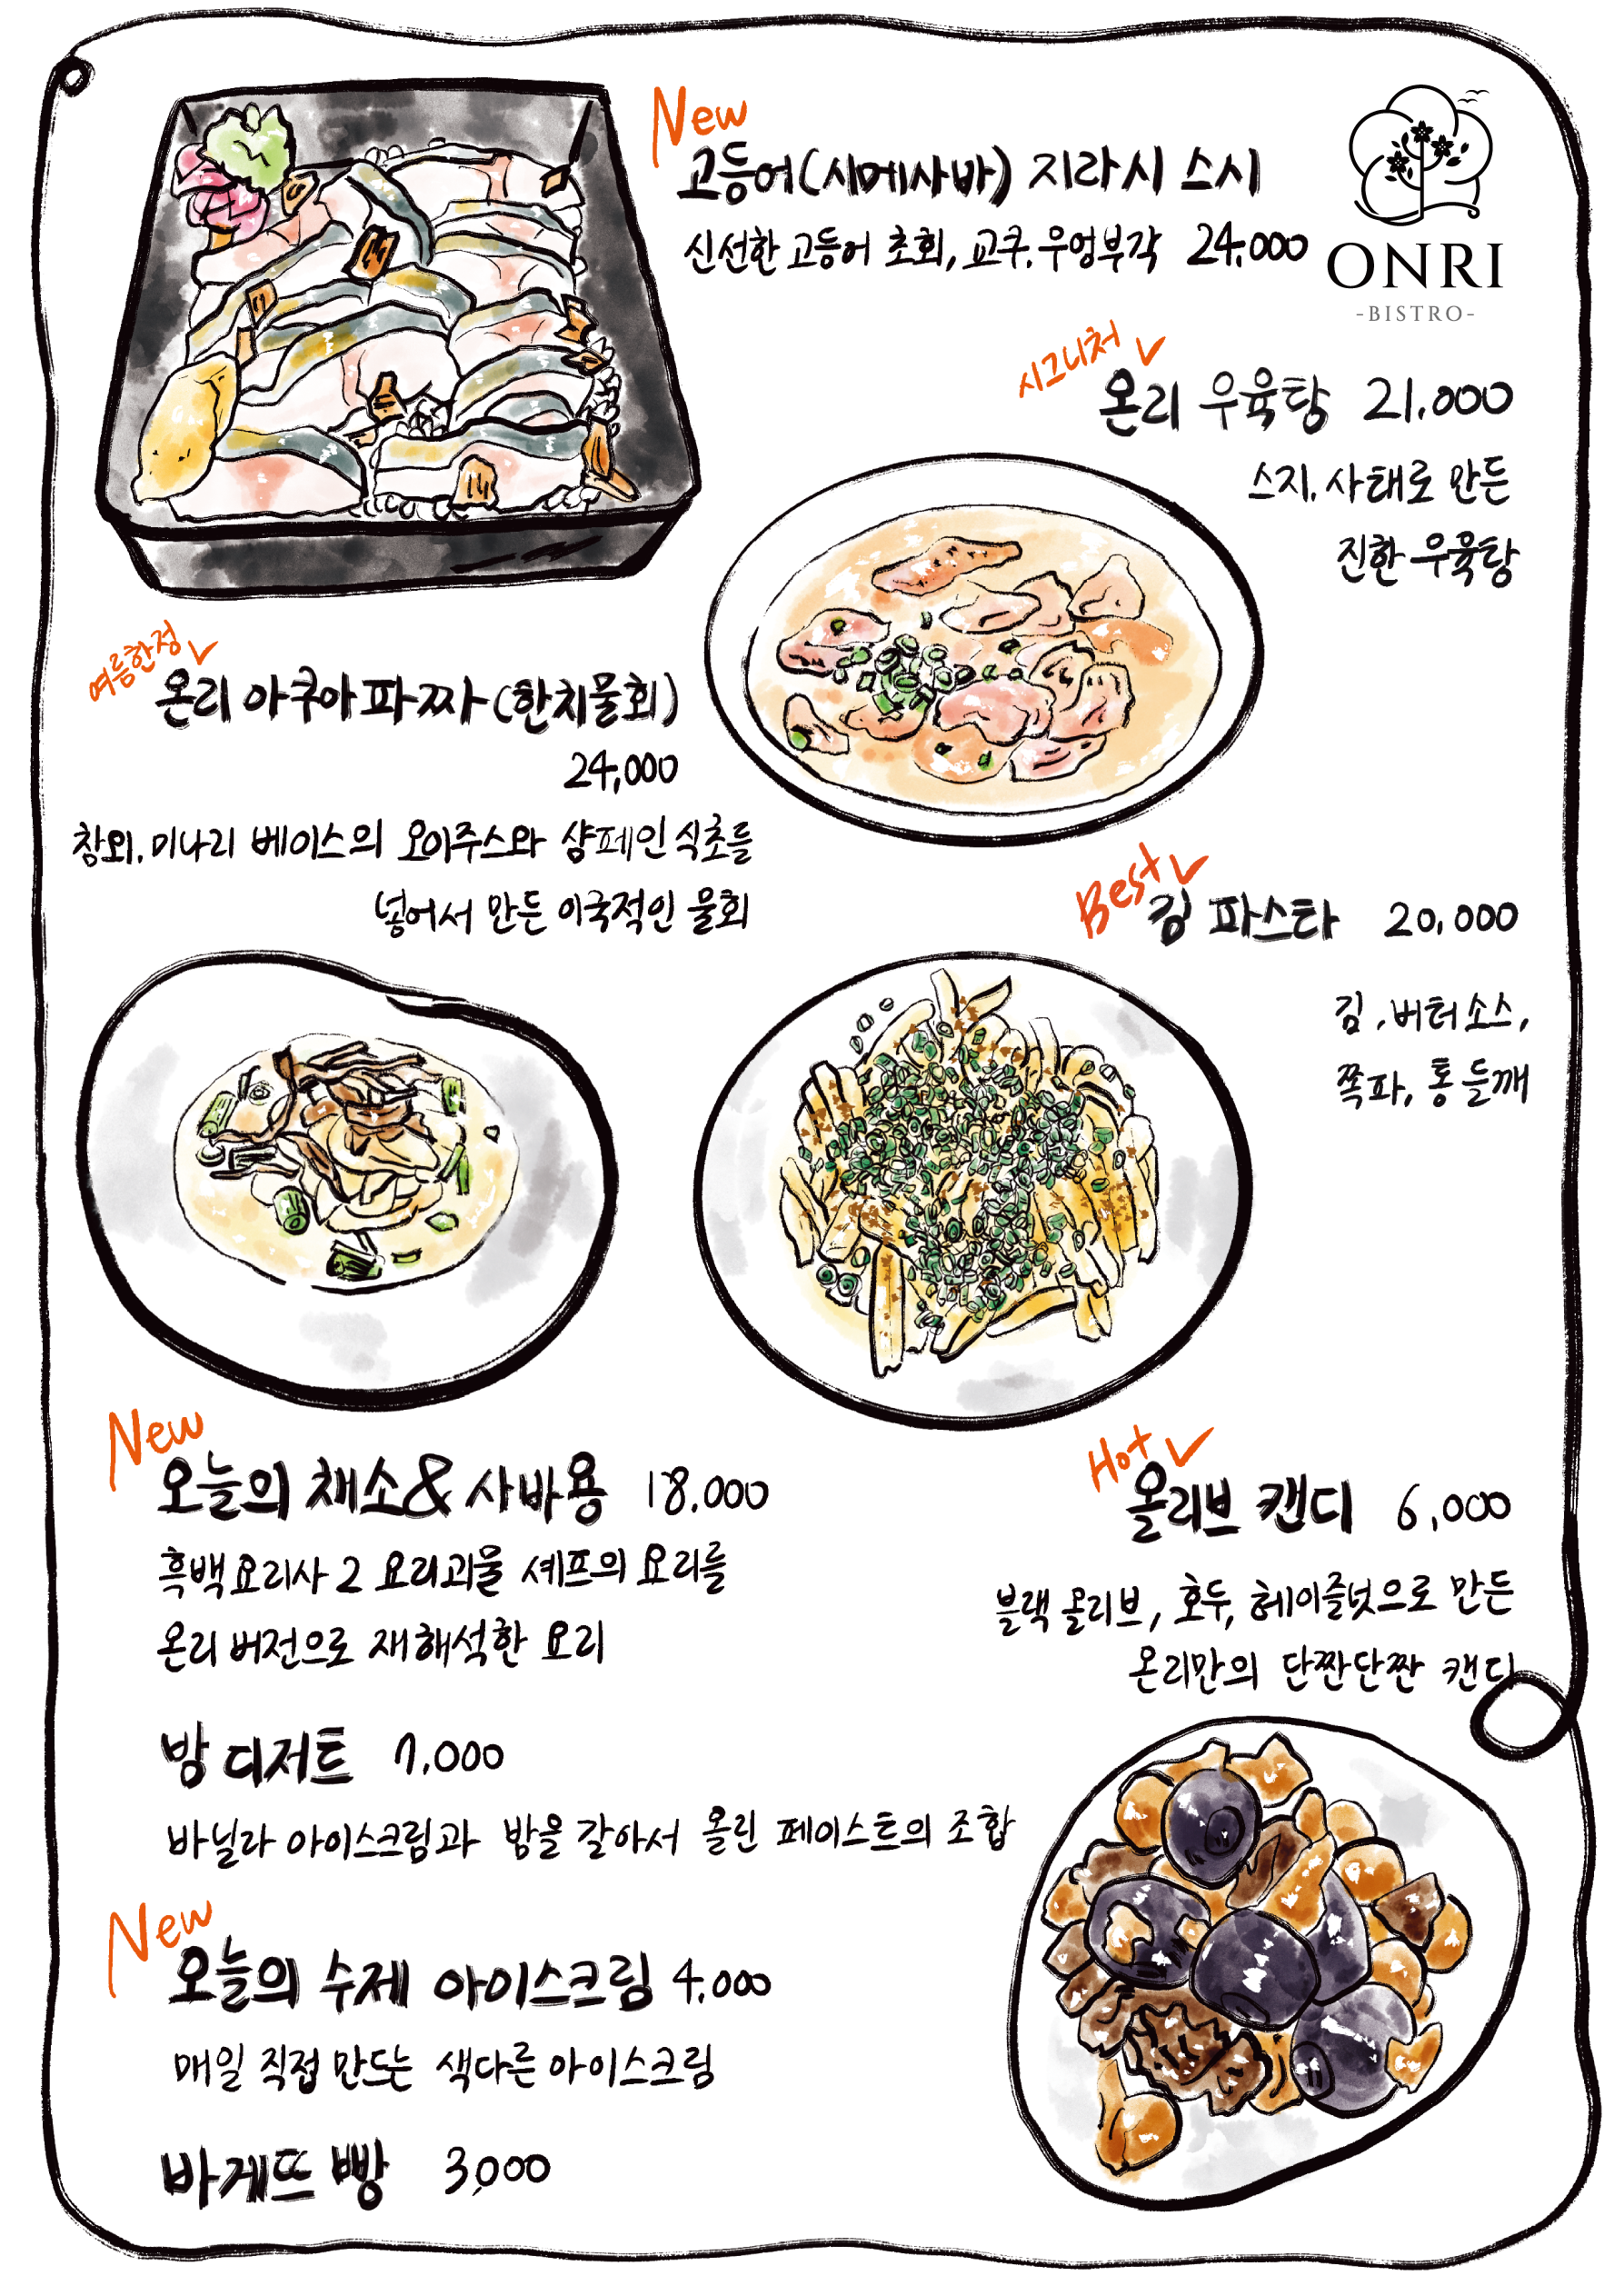 New
고등어(시메사바) 지라시 스시
신선한 고등어 초회, 교쿠, 우엉부각 24,000
ONRI
-BISTRO-
시그니처
온리 우육탕 21,000
스지, 사태로 만든
진한 우육탕
여름한정
온리 아쿠아파짜 (한치물회)
24,000
참외, 미나리 베이스의 오이주스와 샴페인 식초를
넣어서 만든 이국적인 물회
Best
김 파스타 20,000
김, 버터소스,
쪽파, 통 들깨
New
오늘의 채소 & 사바용 18,000
흑백요리사 2 요리괴물 셰프의 요리를
온리 버전으로 재해석한 요리
Hot
올리브 캔디 6,000
블랙 올리브, 호두, 헤이즐넛으로 만든
온리만의 단짠단짠 캔디
밤 디저트 7,000
바닐라 아이스크림과 밤을 갈아서 올린 페이스트의 조합
New
오늘의 수제 아이스크림 4,000
매일 직접 만드는 색다른 아이스크림
바게뜨 빵 3,000